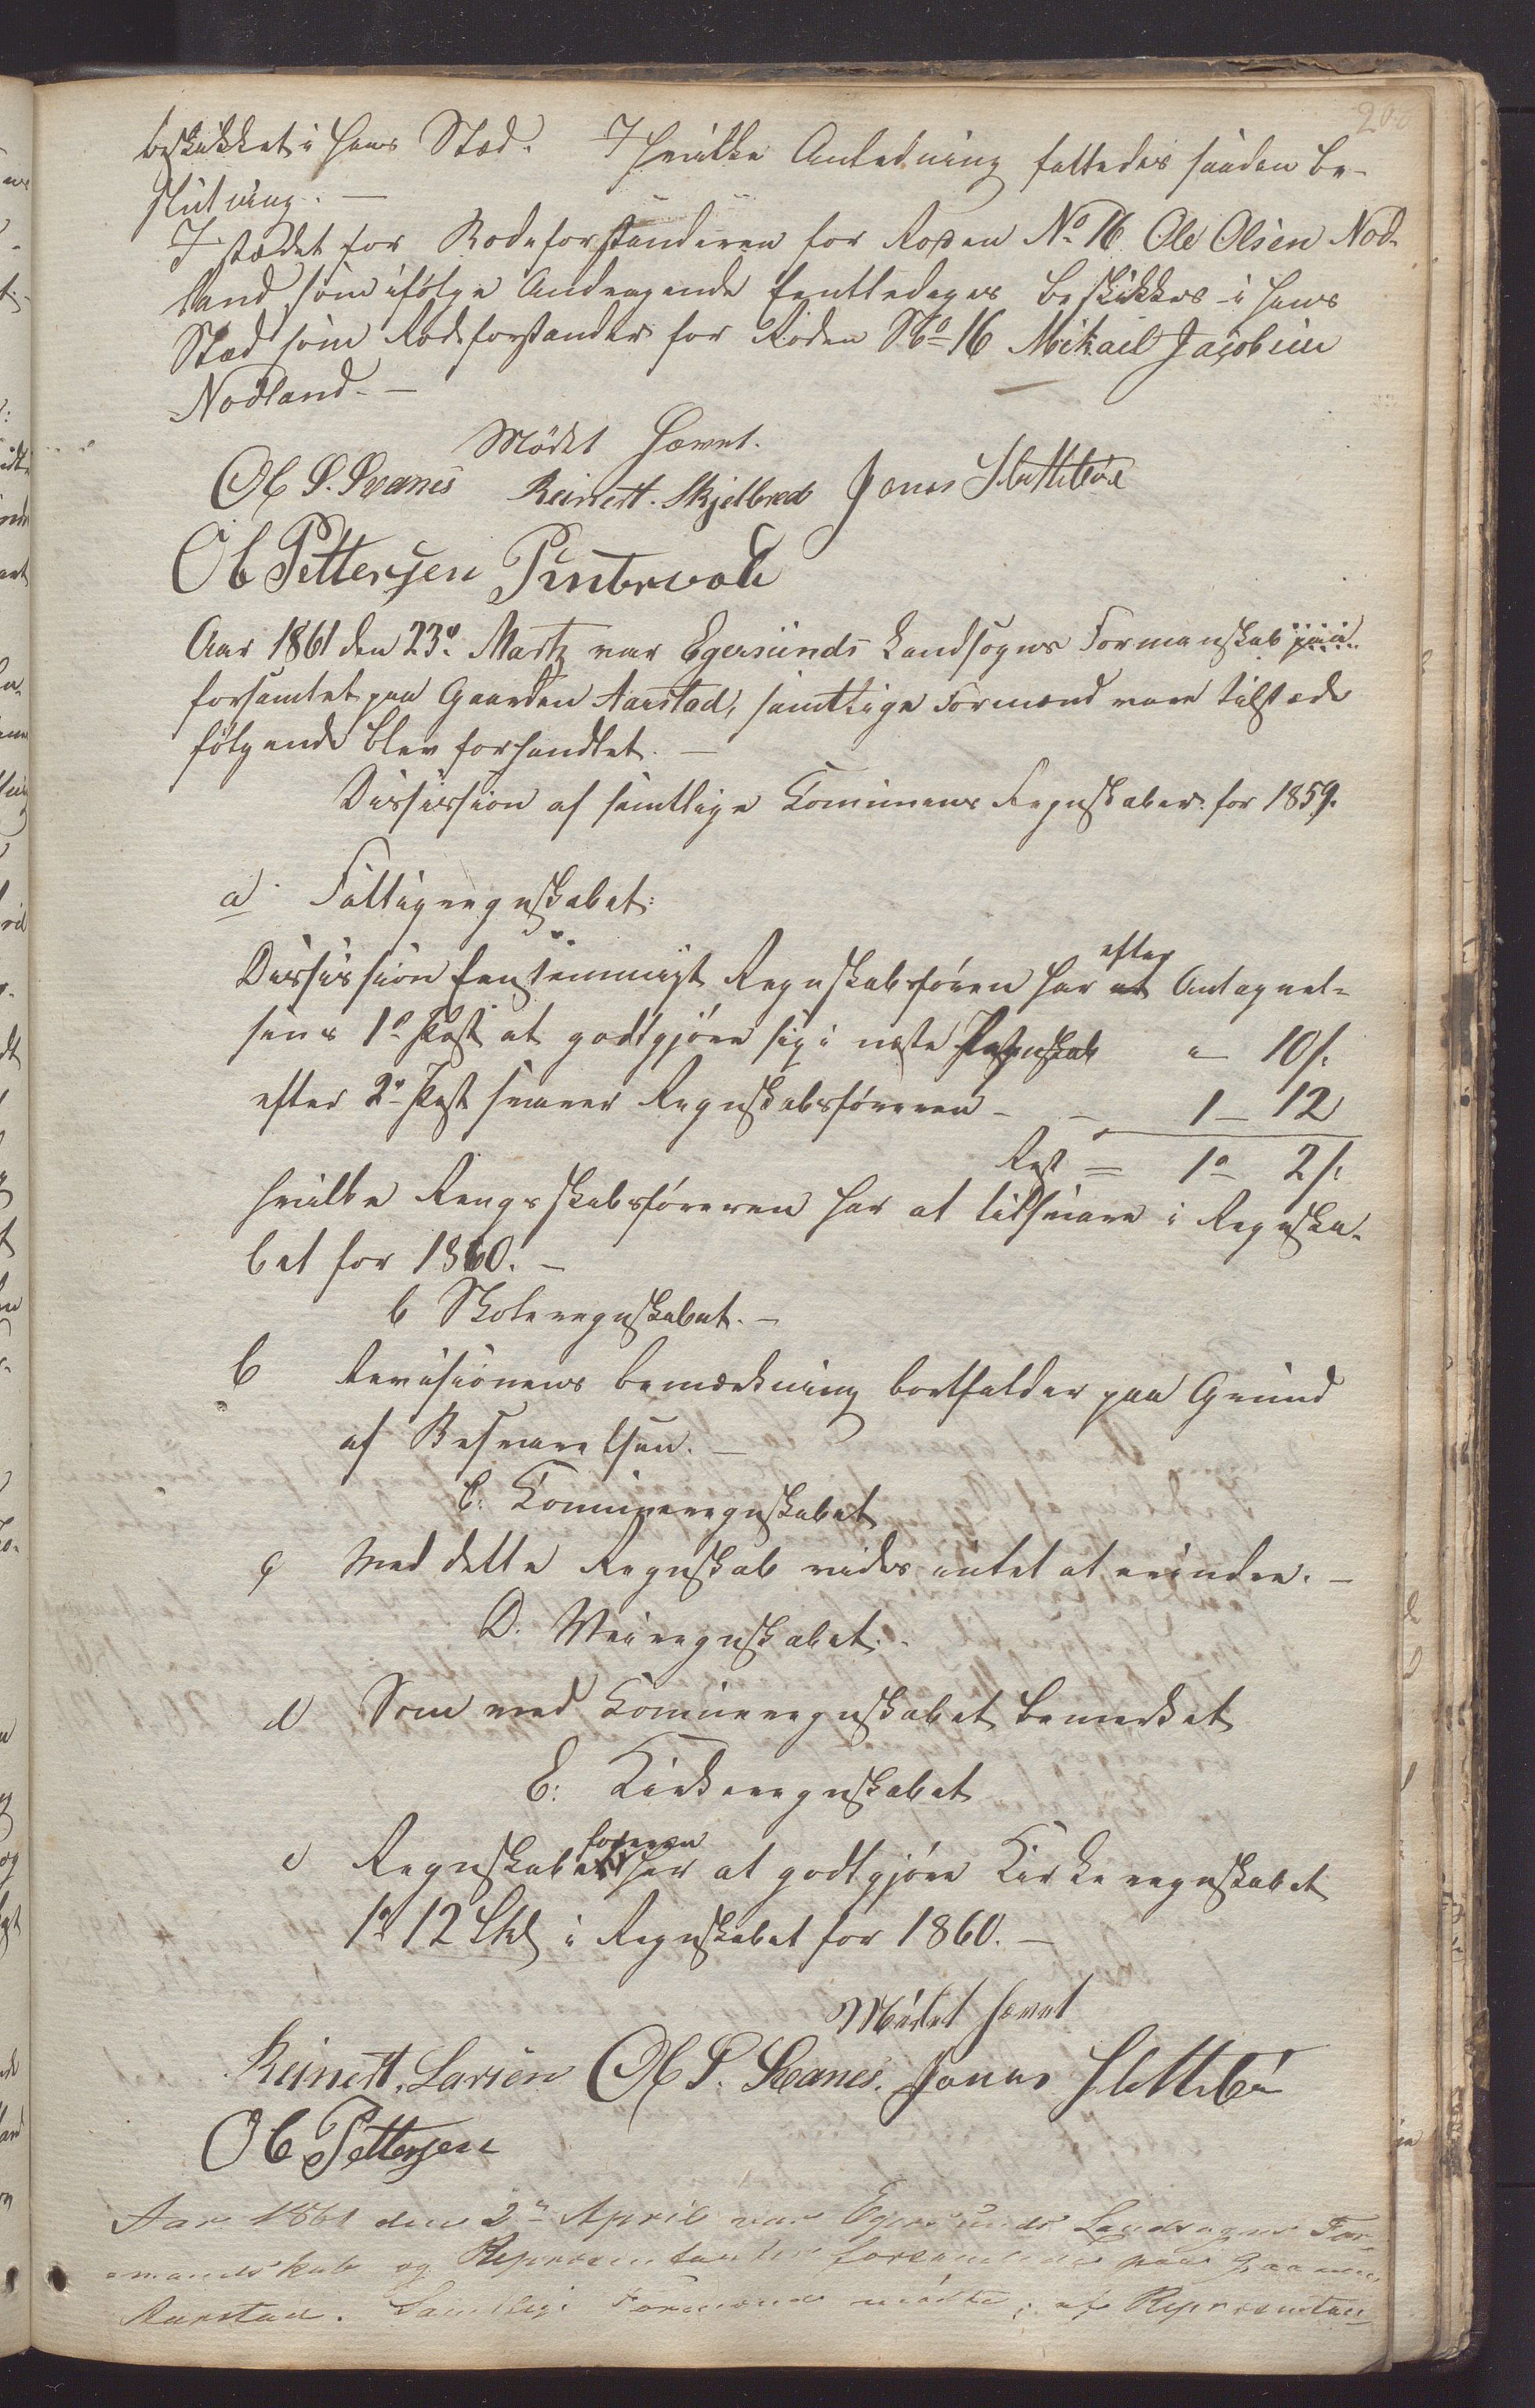 beskikket i hans Sted. I hvilke Anledning fattedes saadan Be-
slutning. —
I stædet for Rodeforstanderen for Roden No 16 Ole Olsen Nod-
land som ifølge Andragende fentledeges beskikkes i hans
Sted som Rodeforstander for Roden No 16 Mikael Jacobsen
Nodland. —
Mødet hævet.
Ol P. Svanes Reinert. Skjelbred Jonas Slettebøe
Ol Pettersen Puntervold
Aar 1861 den 23de Martz var Egersunds Landsogns Formanskab paa
forsamlet paa Gaarden Aarstad, samtlige Formænd vare tilstede
følgende blev forhandlet. —
Dissision af samtlige Comunens Regnskaber for 1859.
a Fattigregnskabet:
efter
Dissission Regnskabsføren har at Antegnel-
sens 1e Post at godtgjøre sig i neste Regnskab " 10 s.
efter 2de Post svarer Regnskabsføreren - - 1 - 12
Rest = 1 - 2 s.
hvilke Rengsskabsføreren har at tilsvare i Regnska-
bet for 1860. —
b Skoleregnskabet. —
b Revisionens bemærkning bortfalder paa Grund
af Besvarelsen. —
C. Comuneregnskabet
c Med dette Regnskab vides intet at erindre. —
D. Veiregnskabet. -
d Som med Comuneregnskabet bemerket
E: Kirkeregnskabet
føreren
e Regnskabs har at godtgjøre Kirkeregnskabet
1 12 Skl i Regnskabet for 1860. —
Mødet hævet
Reinert. Larsen Ol P. Svanes. Jonas Slettebø
Ol Pettersen
Aar 1861 den 2den April var Egersunds Landsogns For-
mandskab og Representanter forsamlede paa Gaarden
Aarstad. Samtlige Formænd mødte; af Representan-